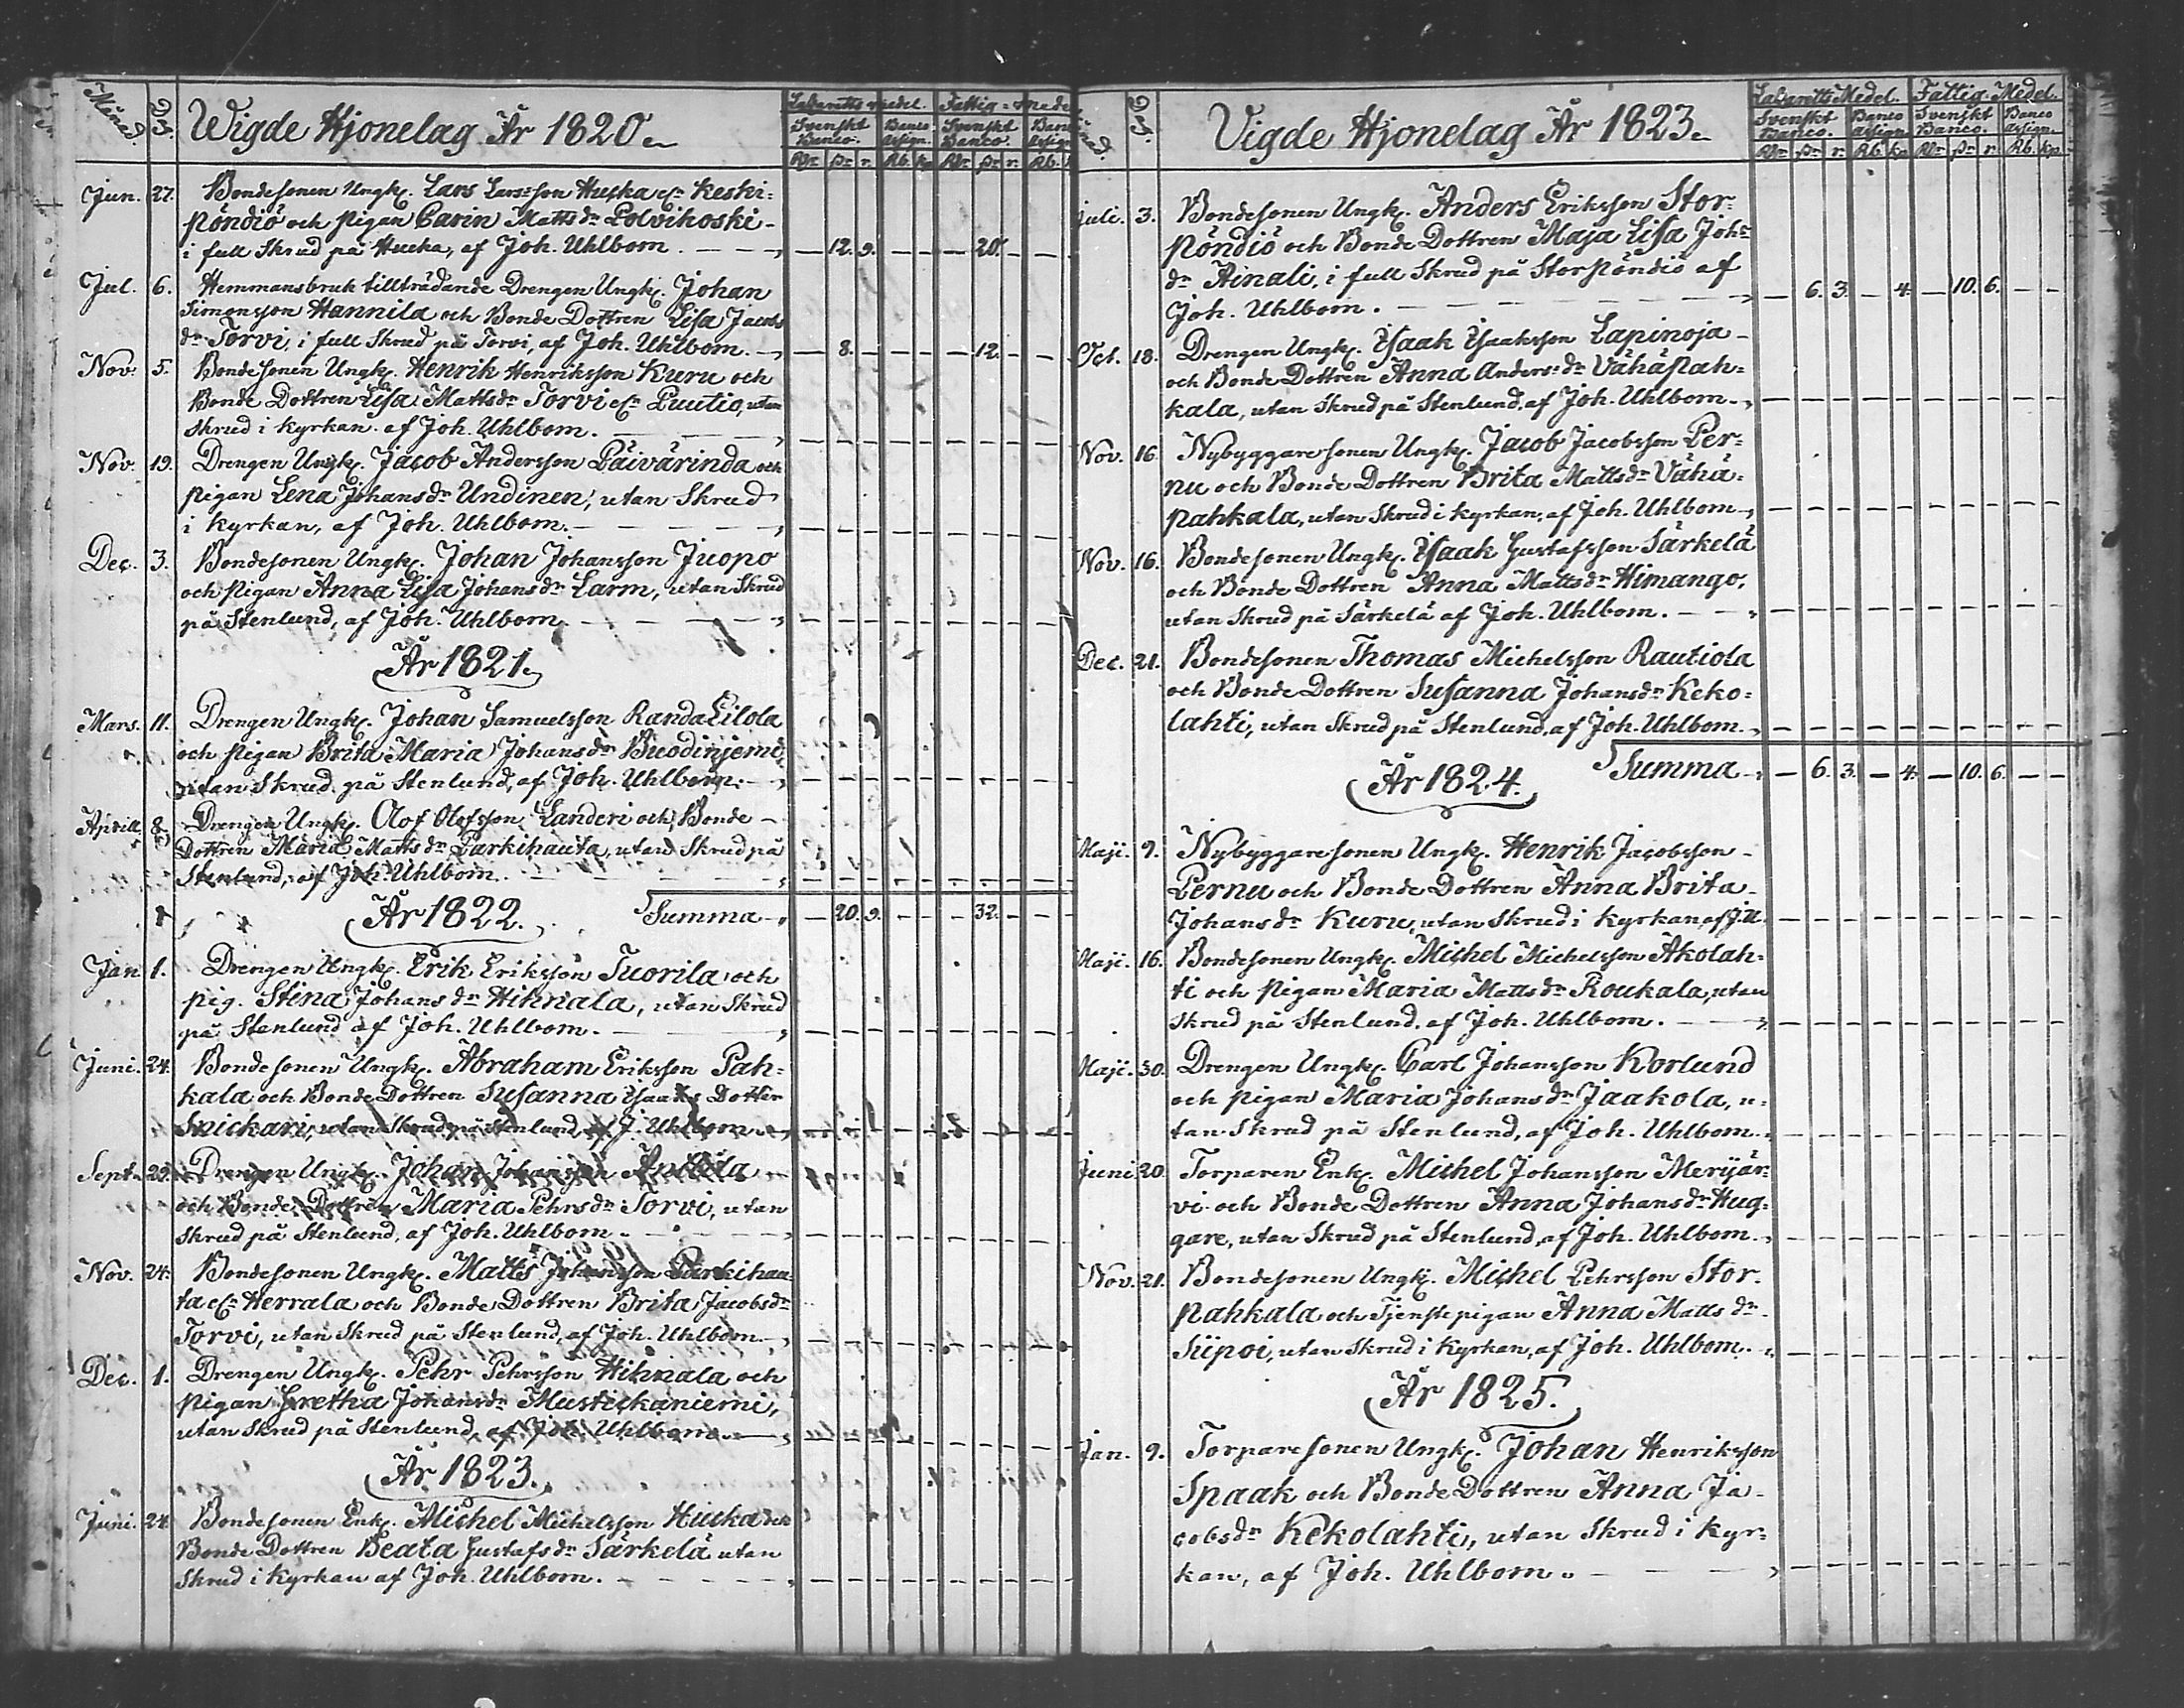 Månad. Dag. Wigde Hjonelag År 1820. Lazaretts medel. Fattig-medel
Svenskt Banco. Banco assign. Svenskt Banco. Banco assign.
Rdr sk. r. Rb. kp Rdr sk. r. Rb.
Jun. 27. Bondesonen Ungk. Lars Larsson Huska el. Keski-
pöndiö och pigan Carin Mattsdr Polvikoski -
i full Skrud på Huska, af Joh. Uhlbom. — 12. 9. — — — 20. — — —
Jul. 6. Hemmansbruk tillträdande Drengen Ungk. Johan
Simonsson Hannila och Bonde Dottren Lisa Jacobs
dr Torvi, i full Skrud på Torvi, af Joh. Uhlbom. — 8. — — — — 12. — — —
Nov. 5. Bondesonen Ungk. Henrik Henriksson Kuru och
Bonde Dottren Lisa Mattsdr Torvi el. Puutio, utan
skrud i Kyrkan. af Joh. Uhlbom.
Nov. 19. Drengen Ungk. Jacob Andersson Päivärinda och
pigan Lena Johansdr Undinen, utan Skrud
i Kyrkan, af Joh. Uhlbom.
Dec. 3. Bondesonen Ungk. Johan Johansson Juopo
och pigan Anna Lisa Johansdr Larm, utan Skrud
på Stenlund, af Joh. Uhlbom.
År 1821.
Mars. 11. Drengen Ungk. Johan Samuelsson Randa Eilola
och pigan Brita Maria Johansdr
utan Skrud på Stenlund, af Joh. Uhlbom.
Aprill 8. Drengen Ungk. Olof Olofsson Landeri och Bonde -
Dottren Maria Mattsdr Parkihauta, utan Skrud på
Stenlund, af Joh. Uhlbom.
År 1822. Summa — 20. 9. — — — 32. — — —
Jan 1. Drengen Ungk. Erik Eriksson Tuorila och
pig. Stina Johansdr Hihnala, utan Skrud
på Stenlund af Joh. Uhlbom.
Juni. 24. Bondesonen Ungk. Abraham Eriksson Pah-
kala och Bonde Dottren Susanna Isaaks Dotter
Snickari, utan Skrud på Stenlund, af J. Uhlbom.
Sept. 29. Drengen Ungk. Johan Johansson Anttila
och Bonde Dottren Maria Pehrsdr Torvi, utan
Skrud på Stenlund, af Joh. Uhlbom.
Nov. 24. Bondesonen Ungk. Matts Johansson Parkihau-
ta el. Herrala och Bonde Dottren Brita Jacobsdr
Torvi, utan Skrud på Stenlund, af Joh. Uhlbom.
Dec. 1. Drengen Ungk. Pehr Pehrsson Hihnala och
pigan Gretha Johansdr Mustickaniemi,
utan Skrud på Stenlund, af Joh. Uhlbom.
År 1823.
Juni. 24. Bondesonen Enk. Michel Michelsson Huska och
Bonde Dottren Beata Gustafsdr Särkelä utan
Skrud i Kyrkan af Joh. Uhlbom.
Dag. Vigde Hjonelag År 1823. Lazaretts Medel. Fattig-Medel.
Svenskt Banco. Banco assign. Svenskt Banco. Banco assign.
Rdr sk. r. Rb. kp. Rdr sk. r. Rb. kp.
Juli. 3. Bondesonen Ungk. Anders Eriksson Stor-
pöndiö och Bonde Dottren Maja Lisa Johs
dr Ainali, i full Skrud på Storpöndiö af
Joh. Uhlbom. — 6. 3. — 4. — 10. 6. — —
Oct. 18. Drengen Ungk. Isaak Isaaksson Lapinoja -
och Bonde Dottren Anna Andersdr Vähäpah-
kala, utan Skrud på Stenlund, af Joh. Uhlbom.
Nov. 16. Nybyggaresonen Ungk. Jacob Jacobsson Per-
nu och Bonde Dottren Brita Mattsdr Vähä-
pahkala, utan Skrud i Kyrkan, af Joh. Uhlbom
Nov. 16. Bondesonen Ungk. Isaak Gustafsson Särkelä
och Bonde Dottren Anna Mattsdr Himango,
utan Skrud på Särkelä af Joh. Uhlbom.
Dec. 21. Bondesonen Thomas Michelsson Rautiola
och Bonde Dottren Susanna Johansdr Keko-
lahti, utan Skrud på Stenlund, af Joh. Uhlbom.
År 1824. Summa — 6. 3. — 4. — 10. 6. — —
Maji. 9. Nybyggaresonen Ungk. Henrik Jacobsson -
Pernu och Bonde Dottren Anna Brita -
Johansdr Kuru, utan Skrud i Kyrkan, af J. U.
Maji. 16. Bondesonen Ungk. Michel Michelsson Akolah-
ti och pigan Maria Matsdr Roukala, utan
Skrud på Stenlund, af Joh. Uhlbom.
Maji. 30. Drengen Ungk. Carl Johansson Korlund
och pigan Maria Johansdr Jaakola, u-
tan Skrud på Stenlund, af Joh. Uhlbom.
Juni 20. Torparen Enk. Michel Johansson Merijär-
vi och Bonde Dottren Anna Johansdr Hug-
gare, utan Skrud på Stenlund, af Joh. Uhlbom.
Nov. 21. Bondesonen Ungk. Michel Pehrsson Stor-
pahkala och Tjenstepigan Anna Matsdr -
Siipoi, utan Skrud i Kyrkan, af Joh. Uhlbom.
År 1825.
Jan. 9. Torparesonen Ungk. Johan Henriksson
Spaak och Bonde Dottren Anna Ja-
cobsdr Kekolahti, utan Skrud i Kyr-
kan, af Joh. Uhlbom.